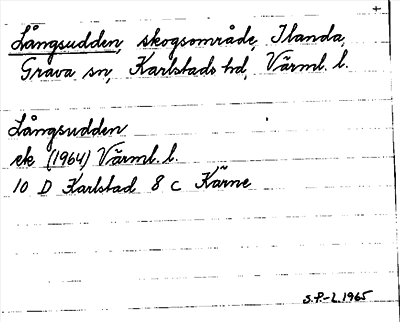 Långsudden, skogsområde, Ilanda,
Grava sn, Karlstads hd, Värml. l.
Långsudden
ek (1964) Värml. l.
10 D Karlstad 8 c Kärne
S.P-L. 1965